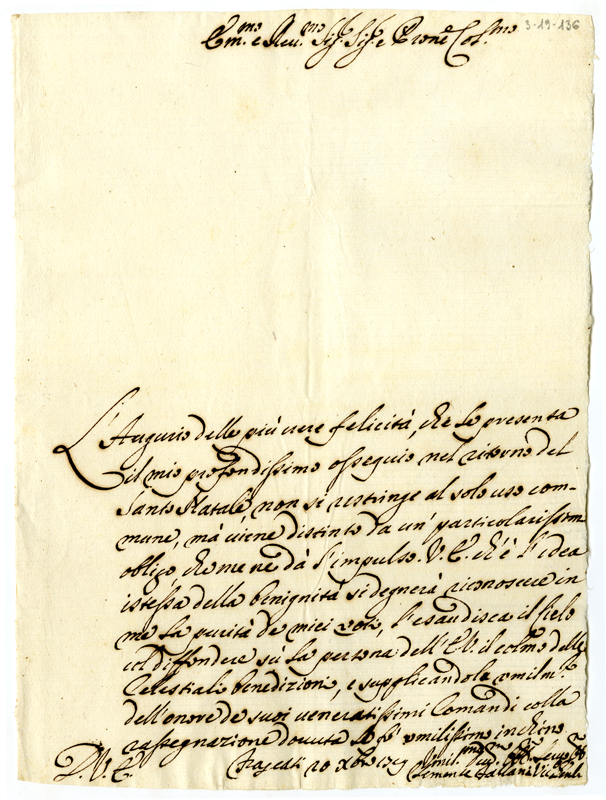 3-19-136
Em.mo e Reu.mo Sig.r Sig.r e Prone Col.mo
L'Augurio delle più uere felicità, che le presenta
il mio profondissimo ossequio nel ritorno del
Santo Natale non si restringe al solo uso com-
mune, mà uiene distinto da un' particolarissim
obligo, che me ne dà l'impulso. V. E. ch'è l'idea
istessa della benignità si degnerà riconoscere in
me la purità de miei voti, l'esaudisca il Cielo
col diffondere sù la persona dell' E.V. il colmo delle
Celestiali benedizioni, e supplicandola umilm.te
dell'onore de suoi ueneratissimi Comandi colla
rassegnazione douuta le fò umilissimo inchino
D. V. E.
Frascati 20 Xbre
Clemente